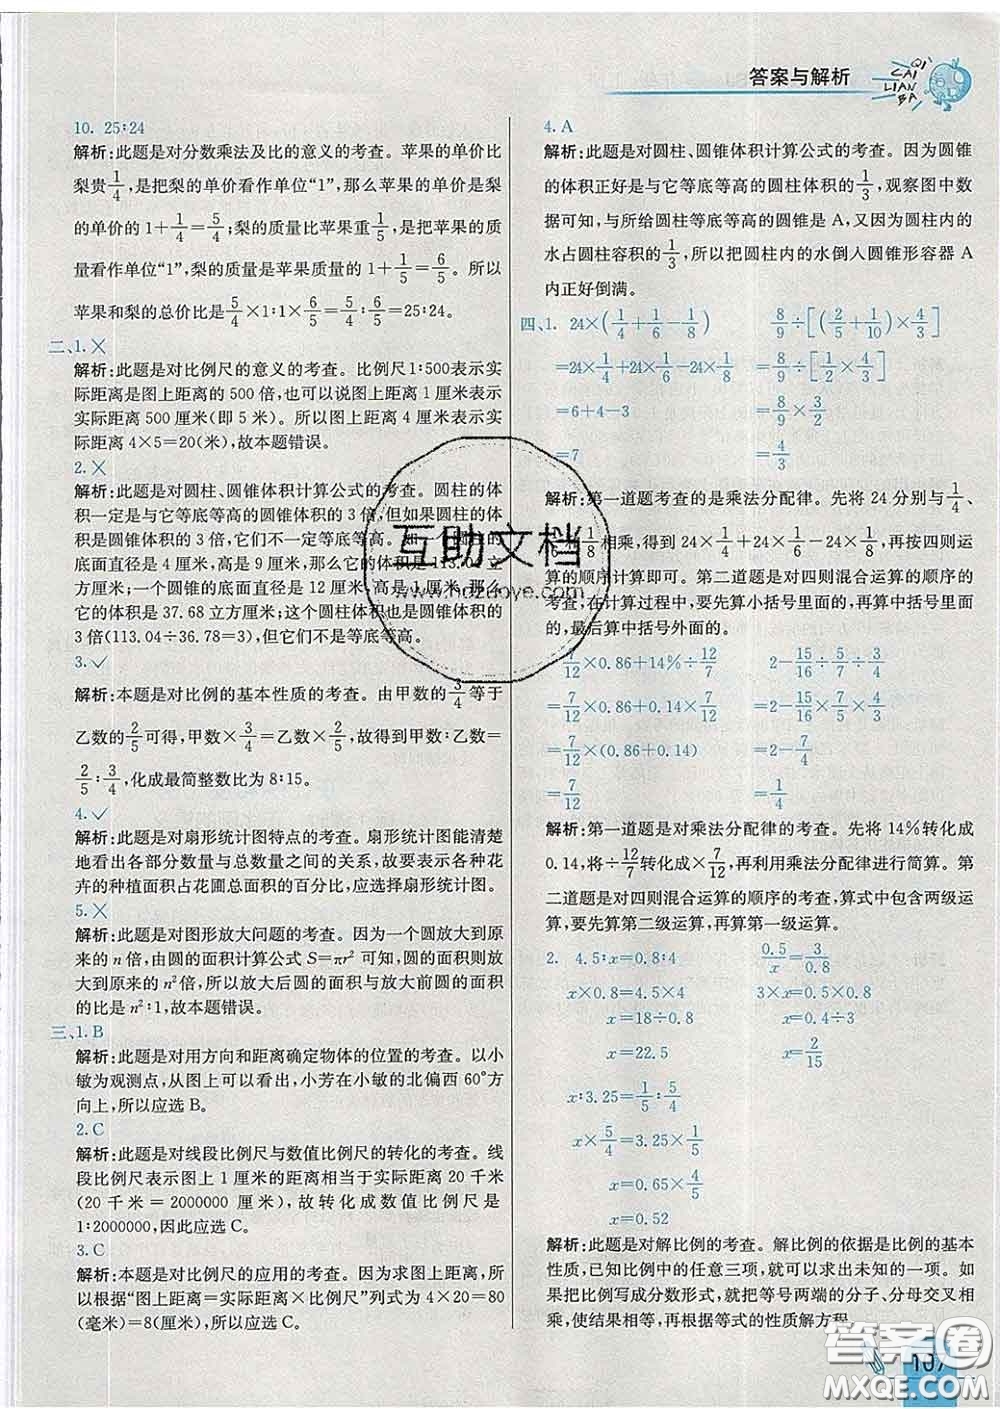 答案与解析
QI
CAI
LIAN
BA
10. 25∶24
解析:此题是对分数乘法及比的意义的考查。苹果的单价比
梨贵1/4,是把梨的单价看作单位“1”,那么苹果的单价是梨
的单价的 1+1/4=5/4;梨的质量比苹果重1/5,是把苹果的质
量看作单位“1”,梨的质量是苹果质量的 1+1/5=6/5。所以
苹果和梨的总价比是5/4×1∶1×6/5=5/4∶6/5=25∶24。
二、1. ×
解析:此题是对比例尺的意义的考查。比例尺1∶500表示实
际距离是图上距离的 500 倍,也可以说图上距离 1 厘米表示
实际距离 500 厘米(即 5 米)。所以图上距离 4 厘米表示实
际距离 4×5=20(米),故本题错误。
2. ×
解析:此题是对圆柱、圆锥体积计算公式的考查。圆柱的体
积一定是与它等底等高的圆锥体积的 3 倍,但如果圆柱的体
积是圆锥体积的 3 倍,它们不一定等底等高。如一个圆柱的
底面直径是 4 厘米,高是 9 厘米,那么它的体积是 113.04 立
方厘米;一个圆锥的底面直径是 12 厘米,高是 1 厘米,那么
它的体积是 37.68 立方厘米;这个圆柱体积也是圆锥体积的
3 倍(113.04÷36.78=3),但它们不是等底等高。
3. ✓
解析:本题是对比例的基本性质的考查。由甲数的3/4等于
乙数的2/5可得,甲数×3/4=乙数×2/5,故得到甲数∶乙数=
2/5∶3/4,化成最简整数比为 8∶15。
4. ✓
解析:此题是对扇形统计图特点的考查。扇形统计图能清楚
地看出各部分数量与总数量之间的关系,故要表示各种花
卉的种植面积占花圃总面积的百分比,应选择扇形统计图。
5. ×
解析:此题是对图形放大问题的考查。因为一个圆放大到原
来的 n 倍,由圆的面积计算公式 S=πr² 可知,圆的面积则放
大到原来的 n² 倍,所以放大后圆的面积与放大前圆的面积
的比是 n²∶1,故本题错误。
三、1. B
解析:此题是对用方向和距离确定物体的位置的考查。以小
敏为观测点,从图上可以看出,小芳在小敏的北偏西 60°方
向上,所以应选 B。
2. C
解析:此题是对线段比例尺与数值比例尺的转化的考查。线
段比例尺表示图上 1 厘米的距离相当于实际距离 20 千米
(20 千米 = 2000000 厘米),故转化成数值比例尺是
1∶2000000,因此应选 C。
3. C
解析:本题是对比例尺的应用的考查。因为求图上距离,所
以根据“图上距离=实际距离×比例尺”列式为 4×20=80
(毫米)=8(厘米),所以应选 C。
4. A
解析:此题是对圆柱、圆锥体积计算公式的考查。因为圆锥
的体积正好是与它等底等高的圆柱体积的1/3,观察图中数
据可知,与所给圆柱等底等高的圆锥是 A,又因为圆柱内的
水占圆柱容积的1/3,所以把圆柱内的水倒入圆锥形容器 A
内正好倒满。
四、1. 24×(1/4+1/6-1/8)　8/9÷[(2/5+1/10)×4/3]
=24×1/4+24×1/6-24×1/8　=8/9÷[1/2×4/3]
=6+4-3　=8/9×3/2
=7　=4/3
解析:第一道题考查的是乘法分配律。先将 24 分别与1/4、
1/6、1/8相乘,得到 24×1/4+24×1/6-24×1/8,再按四则运
算的顺序计算即可。第二道题是对四则混合运算的顺序的
考查,在计算过程中,要先算小括号里面的,再算中括号里面
的,最后算中括号外面的。
7/12×0.86+14%÷12/7　2-15/16÷5/7÷3/4
=7/12×0.86+0.14×7/12　=2-15/16×7/5×4/3
=7/12×(0.86+0.14)　=2-7/4
=7/12　=1/4
解析:第一道题是对乘法分配律的考查。先将 14%转化成
0.14,将÷12/7转化成×7/12,再利用乘法分配律进行简算。第
二道题是对四则混合运算的顺序的考查,算式中包含两级运
算,要先算第二级运算,再算第一级运算。
2. 4.5∶x=0.8∶4　0.5/x=3/0.8
x×0.8=4.5×4　3×x=0.5×0.8
x=18÷0.8　x=0.4÷3
x=22.5　x=2/15
x∶3.25=1/5∶5/4
x×5/4=3.25×1/5
x=0.65×4/5
x=0.52
解析:此题是对解比例的考查。解比例的依据是比例的基本
性质,已知比例中的任意三项,就可以求出未知的一项。如
果把比例写成分数形式,就把等号两端的分子、分母交叉相
乘,使结果相等,再根据等式的性质解方程。
互助文档
www.hdzuoye.com
答案圈
MXQE.COM